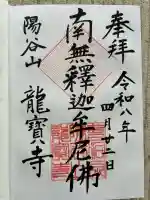 奉拝
令和八年
四月十二日
南無釋迦牟尼佛
陽谷山
龍寶寺